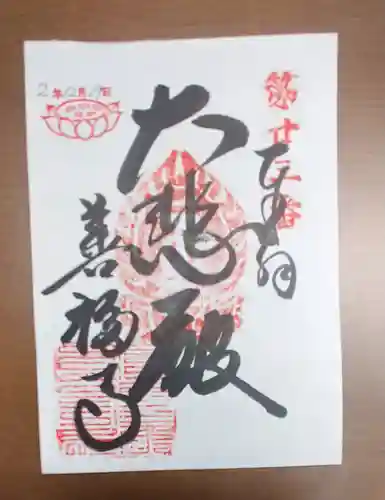 第廿三番
奉拝
大悲殿
善福寺
2年12月19日